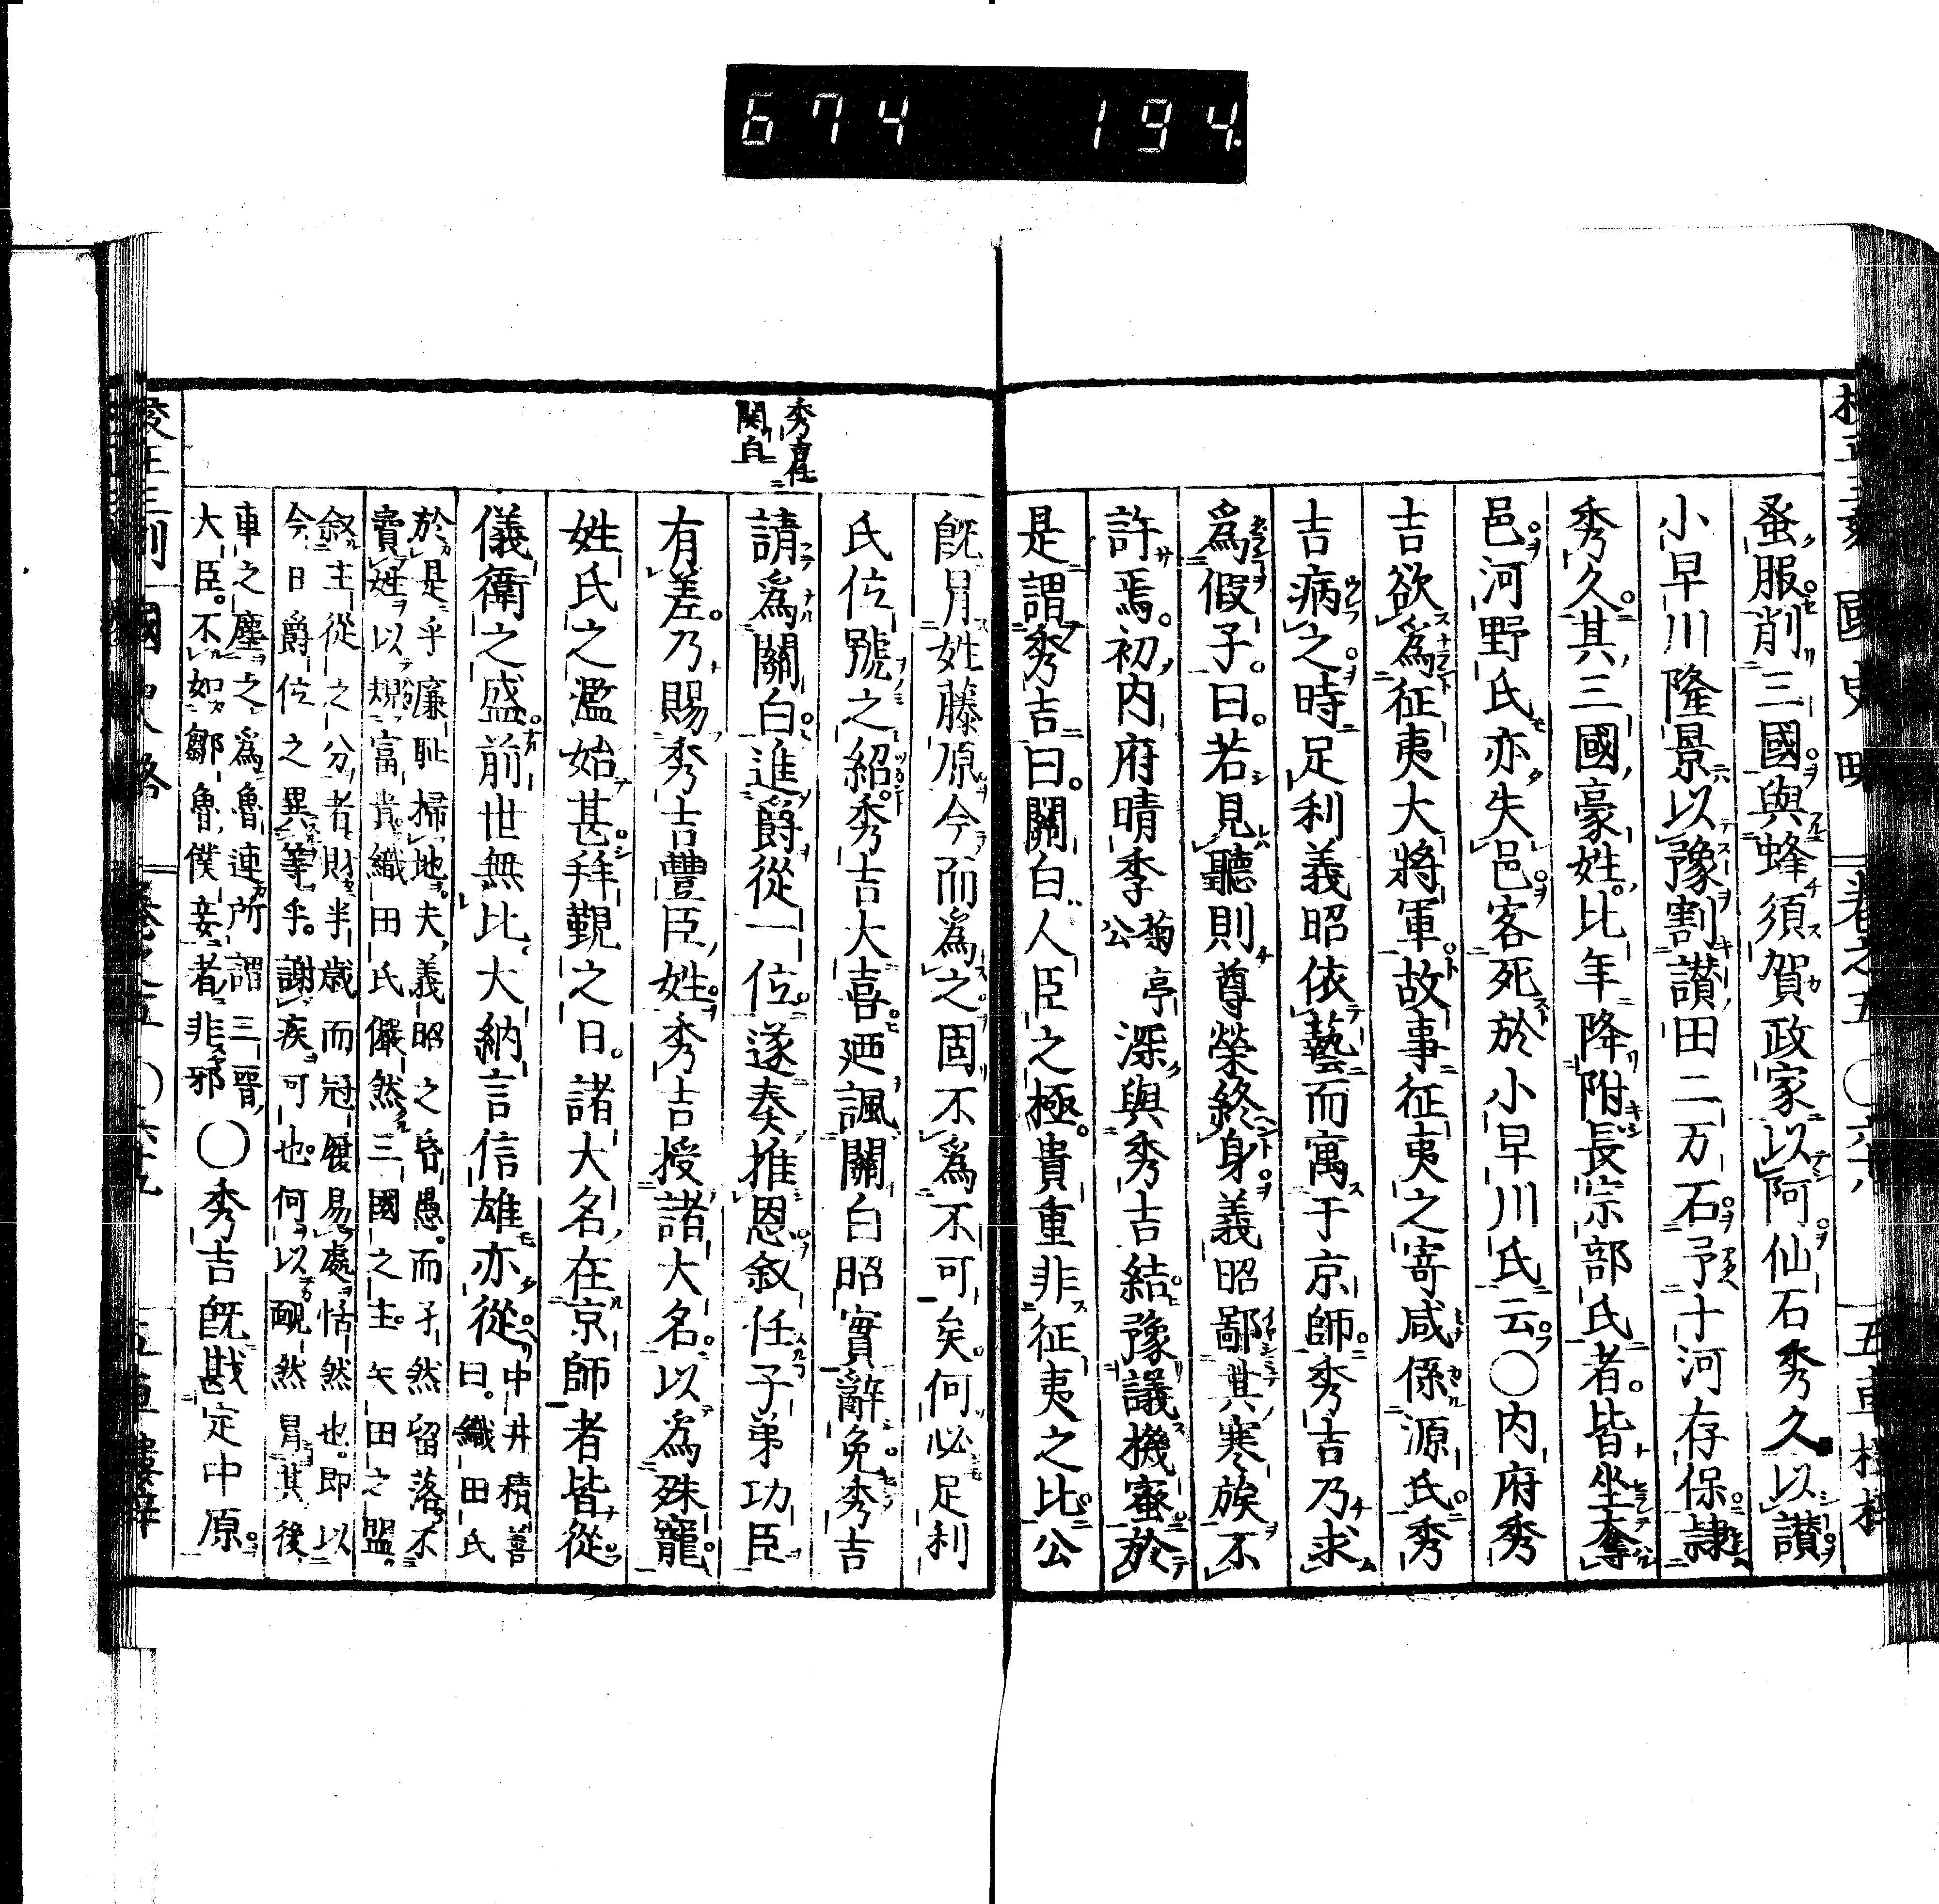 674 194
國史略 卷之五 〇六十八 五車樓梓
蚤服削三國與蜂須賀政家以阿仙石秀久以讃
小早川隆景以豫割讃田二万石予十河存保隷
秀久其三國豪姓比年降附長宗部氏者皆坐奪
邑河野氏亦失邑客死於小早川氏云〇内府秀
吉欲爲征夷大將軍故事征夷之寄咸係源氏秀
吉病之時足利義昭依藝而寓于京師秀吉乃求
爲假子曰若見聽則尊榮終身義昭鄙其寒族不
許焉初内府晴季菊亭公深與秀吉結豫議機蜜於
是謂秀吉曰關白人臣之極貴重非征夷之比公
秀吉任
関白
既冒姓藤原今而爲之固不爲不可矣何必足利
氏位號之紹秀吉大喜廼諷關白昭實辭免秀吉
請爲關白進爵從一位遂奏推恩敘任子弟功臣
有差乃賜秀吉豐臣姓秀吉授諸大名以爲殊寵
姓氏之濫始甚拜覲之日諸大名在京師者皆從
儀衛之盛前世無比大納言信雄亦從中井積善
曰織田氏
於是乎廉耻掃地夫義昭之昏愚而孑然留落不
賣姓以規富貴織田氏儼然三國之主矢田之盟
敘主從之分者財半歳而冠履易處恬然也即以
今日爵位之異等乎謝疾可也何以靦然冒其後
車之塵之爲魯連所謂三晉
大臣不如鄒魯僕妾者非邪〇秀吉既戡定中原
國史略 卷之五 〇六十九 五車樓梓